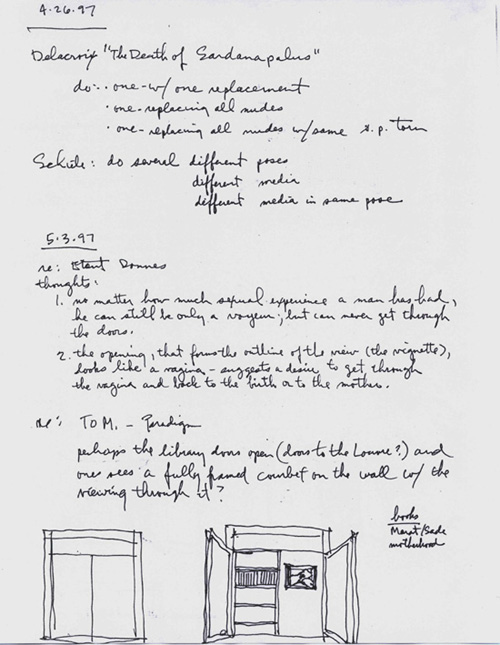 4.26.97
Delacroix "The Death of Sardanapalus"
do: · one - w/ one replacement
· one - replacing all nudes
· one - replacing all nudes w/ same
Schiele: do several different poses
different media
different media in same pose
5.3.97
re: Etant Donnes
thoughts:
1. no matter how much sexual experience a man has had,
he can still be only a voyeur; but can never get through
the doors.
2. the opening, that forms the outline of the view (the vignette),
looks like a vagina - suggests a desire to get through
the vagina and back to the birth or to the mother.
re: TO M. - Paradigm
perhaps the library doors open (doors to the Louvre?) and
one sees a fully framed Courbet on the wall w/ the
viewing through it?
books
Marat/Sade
motherhood